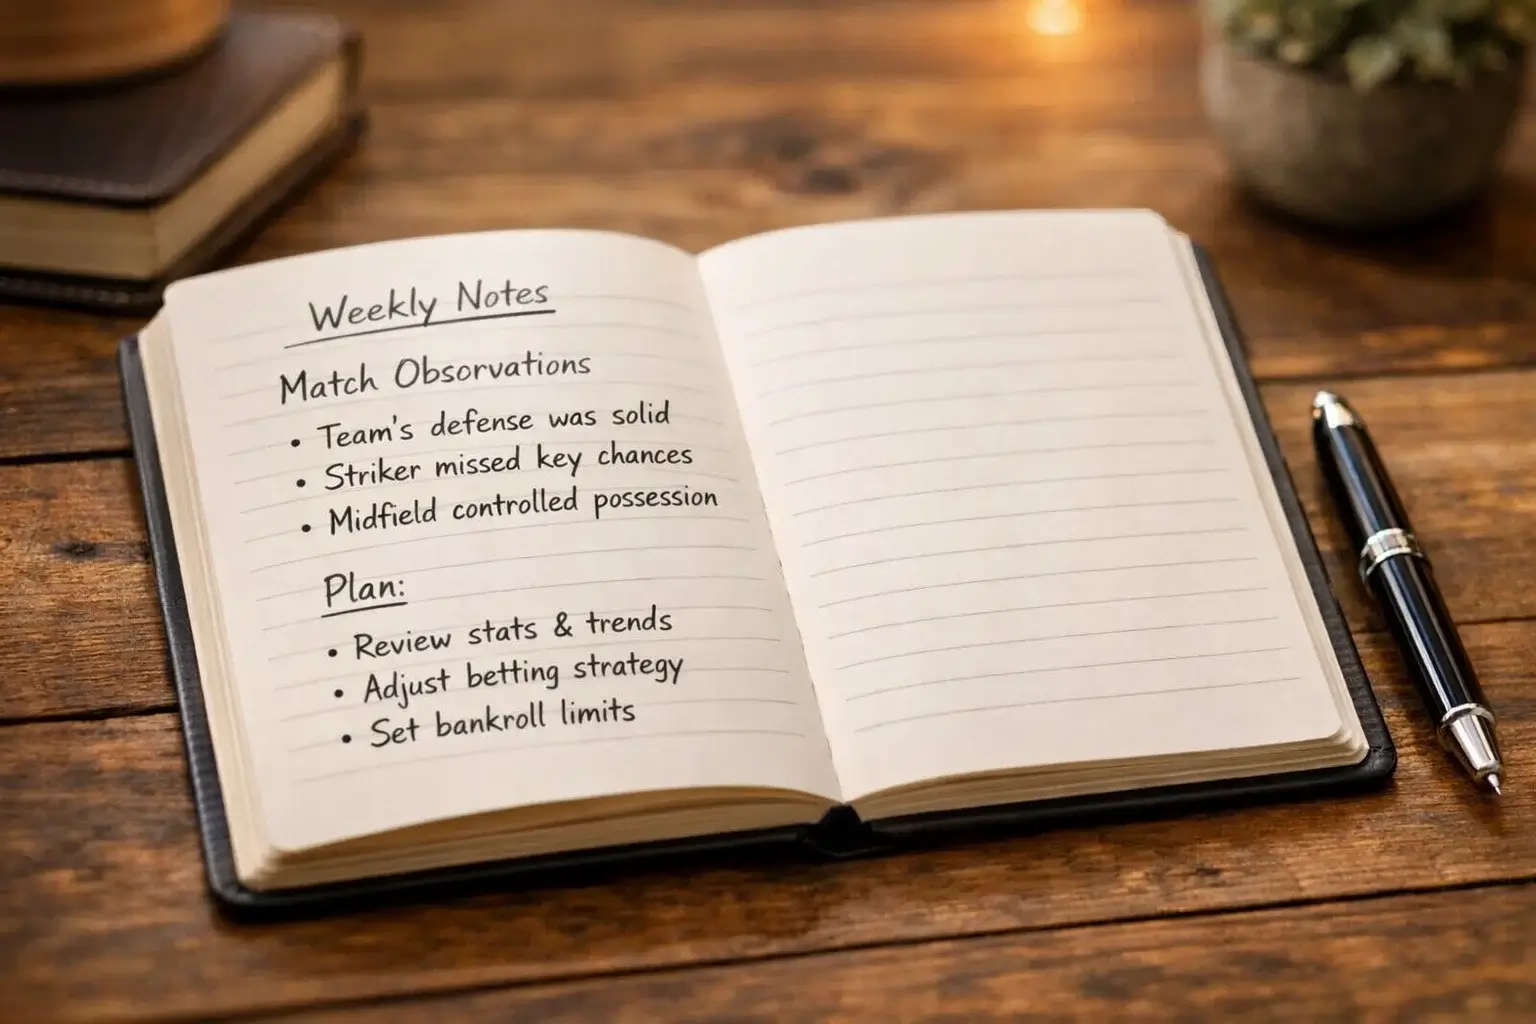 Weekly Notes
Match Observations
• Team's defense was solid
• Striker missed key chances
• Midfield controlled possession
Plan:
• Review stats & trends
• Adjust betting strategy
• Set bankroll limits